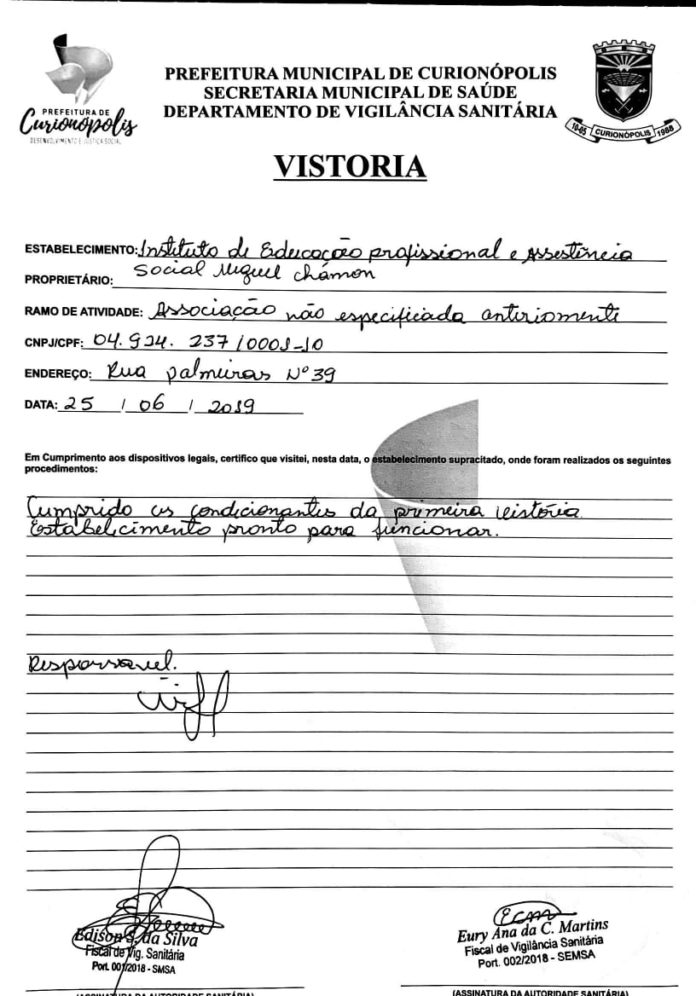 PREFEITURA DE
Curionópolis
DESENVOLVIMENTO E JUSTIÇA SOCIAL
PREFEITURA MUNICIPAL DE CURIONÓPOLIS
SECRETARIA MUNICIPAL DE SAÚDE
DEPARTAMENTO DE VIGILÂNCIA SANITÁRIA
CURIONÓPOLIS 1988
VISTORIA
ESTABELECIMENTO: Instituto de Educação profissional e Assistência
PROPRIETÁRIO: Social Miguel chamon
RAMO DE ATIVIDADE: Associação não especificada anteriomente
CNPJ/CPF: 04.924.237/0001-10
ENDEREÇO: Rua palmeiras Nº 39
DATA: 25 / 06 / 2019
Em Cumprimento aos dispositivos legais, certifico que visitei, nesta data, o estabelecimento supracitado, onde foram realizados os seguintes
procedimentos:
Cumprido as condicionantes da primeira vistoria
Estabelecimento pronto para funcionar.
Responsavel.
Edison S. da Silva
Fiscal de Vig. Sanitária
Port. 001/2018 - SMSA
(ASSINATURA DA AUTORIDADE SANITÁRIA)
Eury Ana da C. Martins
Fiscal de Vigilância Sanitária
Port. 002/2018 - SEMSA
(ASSINATURA DA AUTORIDADE SANITÁRIA)